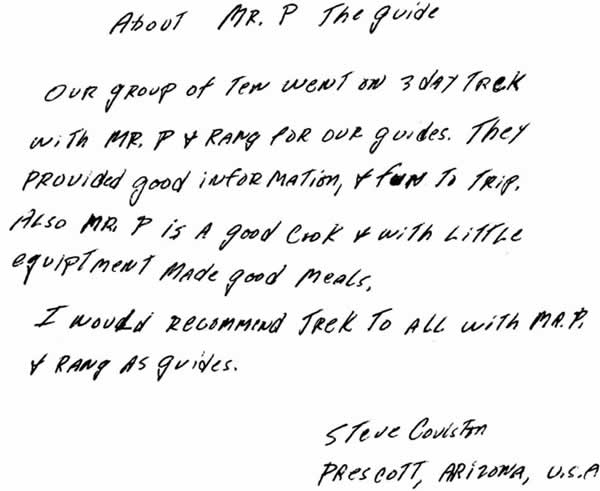 About Mr. P The guide
Our group of Ten went on 3 day Trek
with Mr. P & Rang for our guides. They
provided good information, & fun to trip.
Also Mr. P is a good cook & with little
equiptment made good meals.
I would recommend Trek to all with Mr. P.
& Rang as guides.
Steve Coulston
Prescott, Arizona, U.S.A